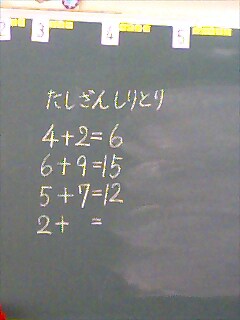 2 3 4 5
たしざんしりとり
4+2=6
6+9=15
5+7=12
2+ =